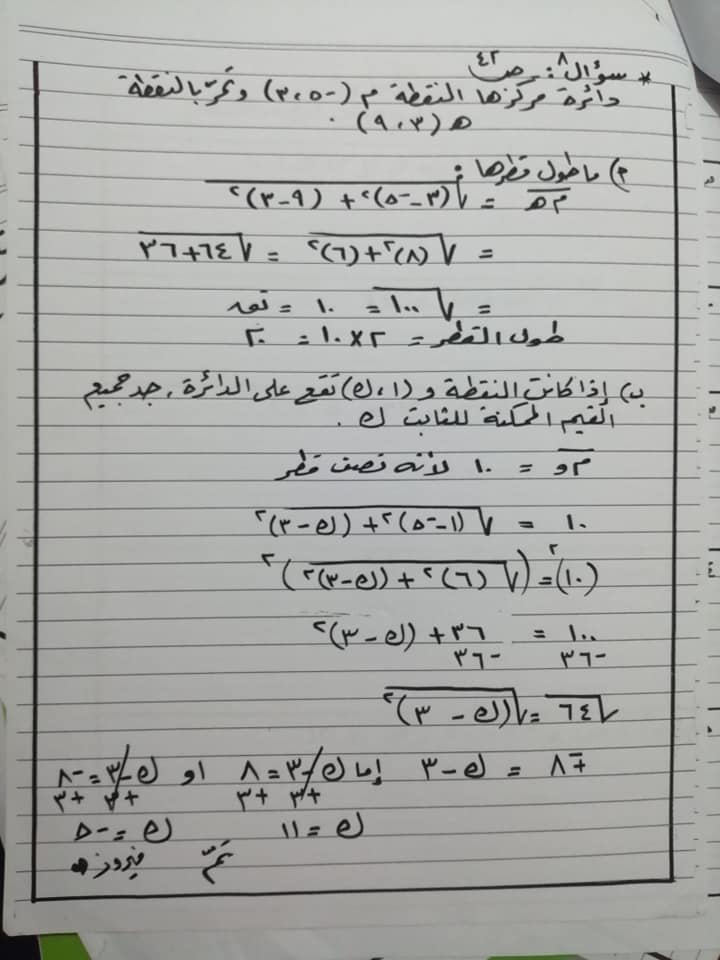 * سؤال ٨: ص ٤٢
دائرة مركزها النقطة م (-٥، ٣) وتمرّ بالنقطة
هـ (٣، ٩).
أ) ما طول قطرها:
م هـ = √(٣ - -٥)² + (٩ - ٣)²
= √(٨)² + (٦)² = √٦٤ + ٣٦
= √١٠٠ = ١٠ = نق
طول القطر = ٢ × ١٠ = ٢٠
ب) إذا كانت النقطة و (١، ك) تقع على الدائرة، جد جميع
القيم الممكنة للثابت ك.
م و = ١٠ لأنه نصف قطر
١٠ = √(١ - -٥)² + (ك - ٣)²
(١٠)² = (√(٦)² + (ك - ٣)²)²
١٠٠ = ٣٦ + (ك - ٣)²
-٣٦ -٣٦
√٦٤ = √(ك - ٣)²
∓٨ = ك - ٣ إما ك - ٣ = ٨ او ك - ٣ = -٨
+٣ +٣ +٣ +٣
ك = ١١ ك = -٥
تمّ فيروز